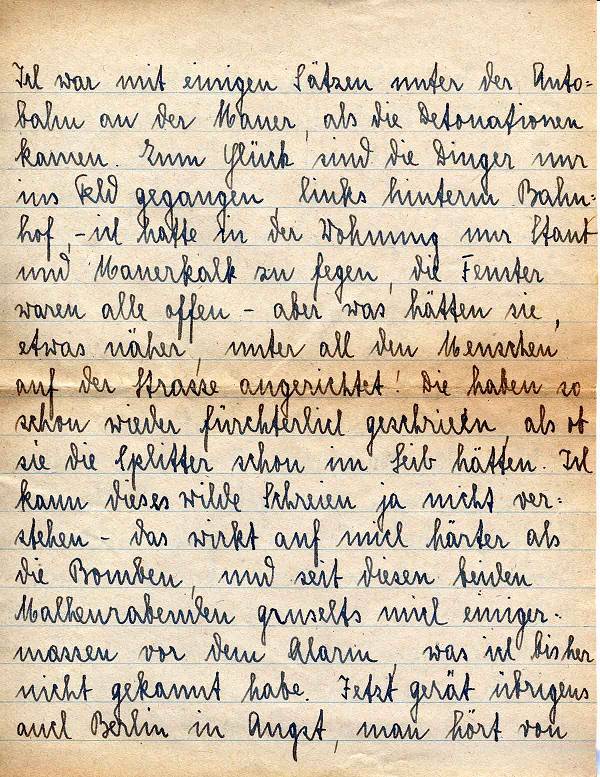 Ich war mit einigen Sätzen unter der Auto=
bahn an der Mauer, als die Detonationen
kamen. Zum Glück sind die Dinger nur
ins Feld gegangen, links hinterm Bahn=
hof, - ich hatte in der Wohnung nur Staub
und Mauerkalk zu fegen, die Fenster
waren alle offen - aber was hätten sie,
etwas näher, unter all den Menschen
auf der Strasse angerichtet! Die haben so
schon wieder fürchterlich geschrieen, als ob
sie die Splitter schon im Leib hätten. Ich
kann dieses wilde Schreien ja nicht ver=
stehen - das wirkt auf mich härter als
die Bomben, und seit diesen beiden
gruselts mich einiger-
massen vor dem Alarm, was ich bisher
nicht gekannt habe. Jetzt gerät übrigens
auch Berlin in Angst, man hört von